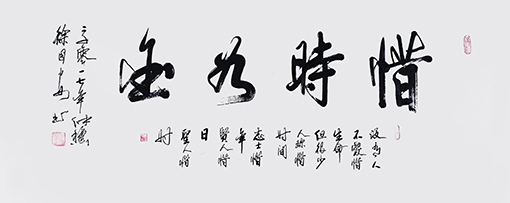 惜時為金
没有人
不愛惜
生命
但很少
人珍惜
时间
志士惜
年
賢人惜
日
聖人惜
时
二零一七年